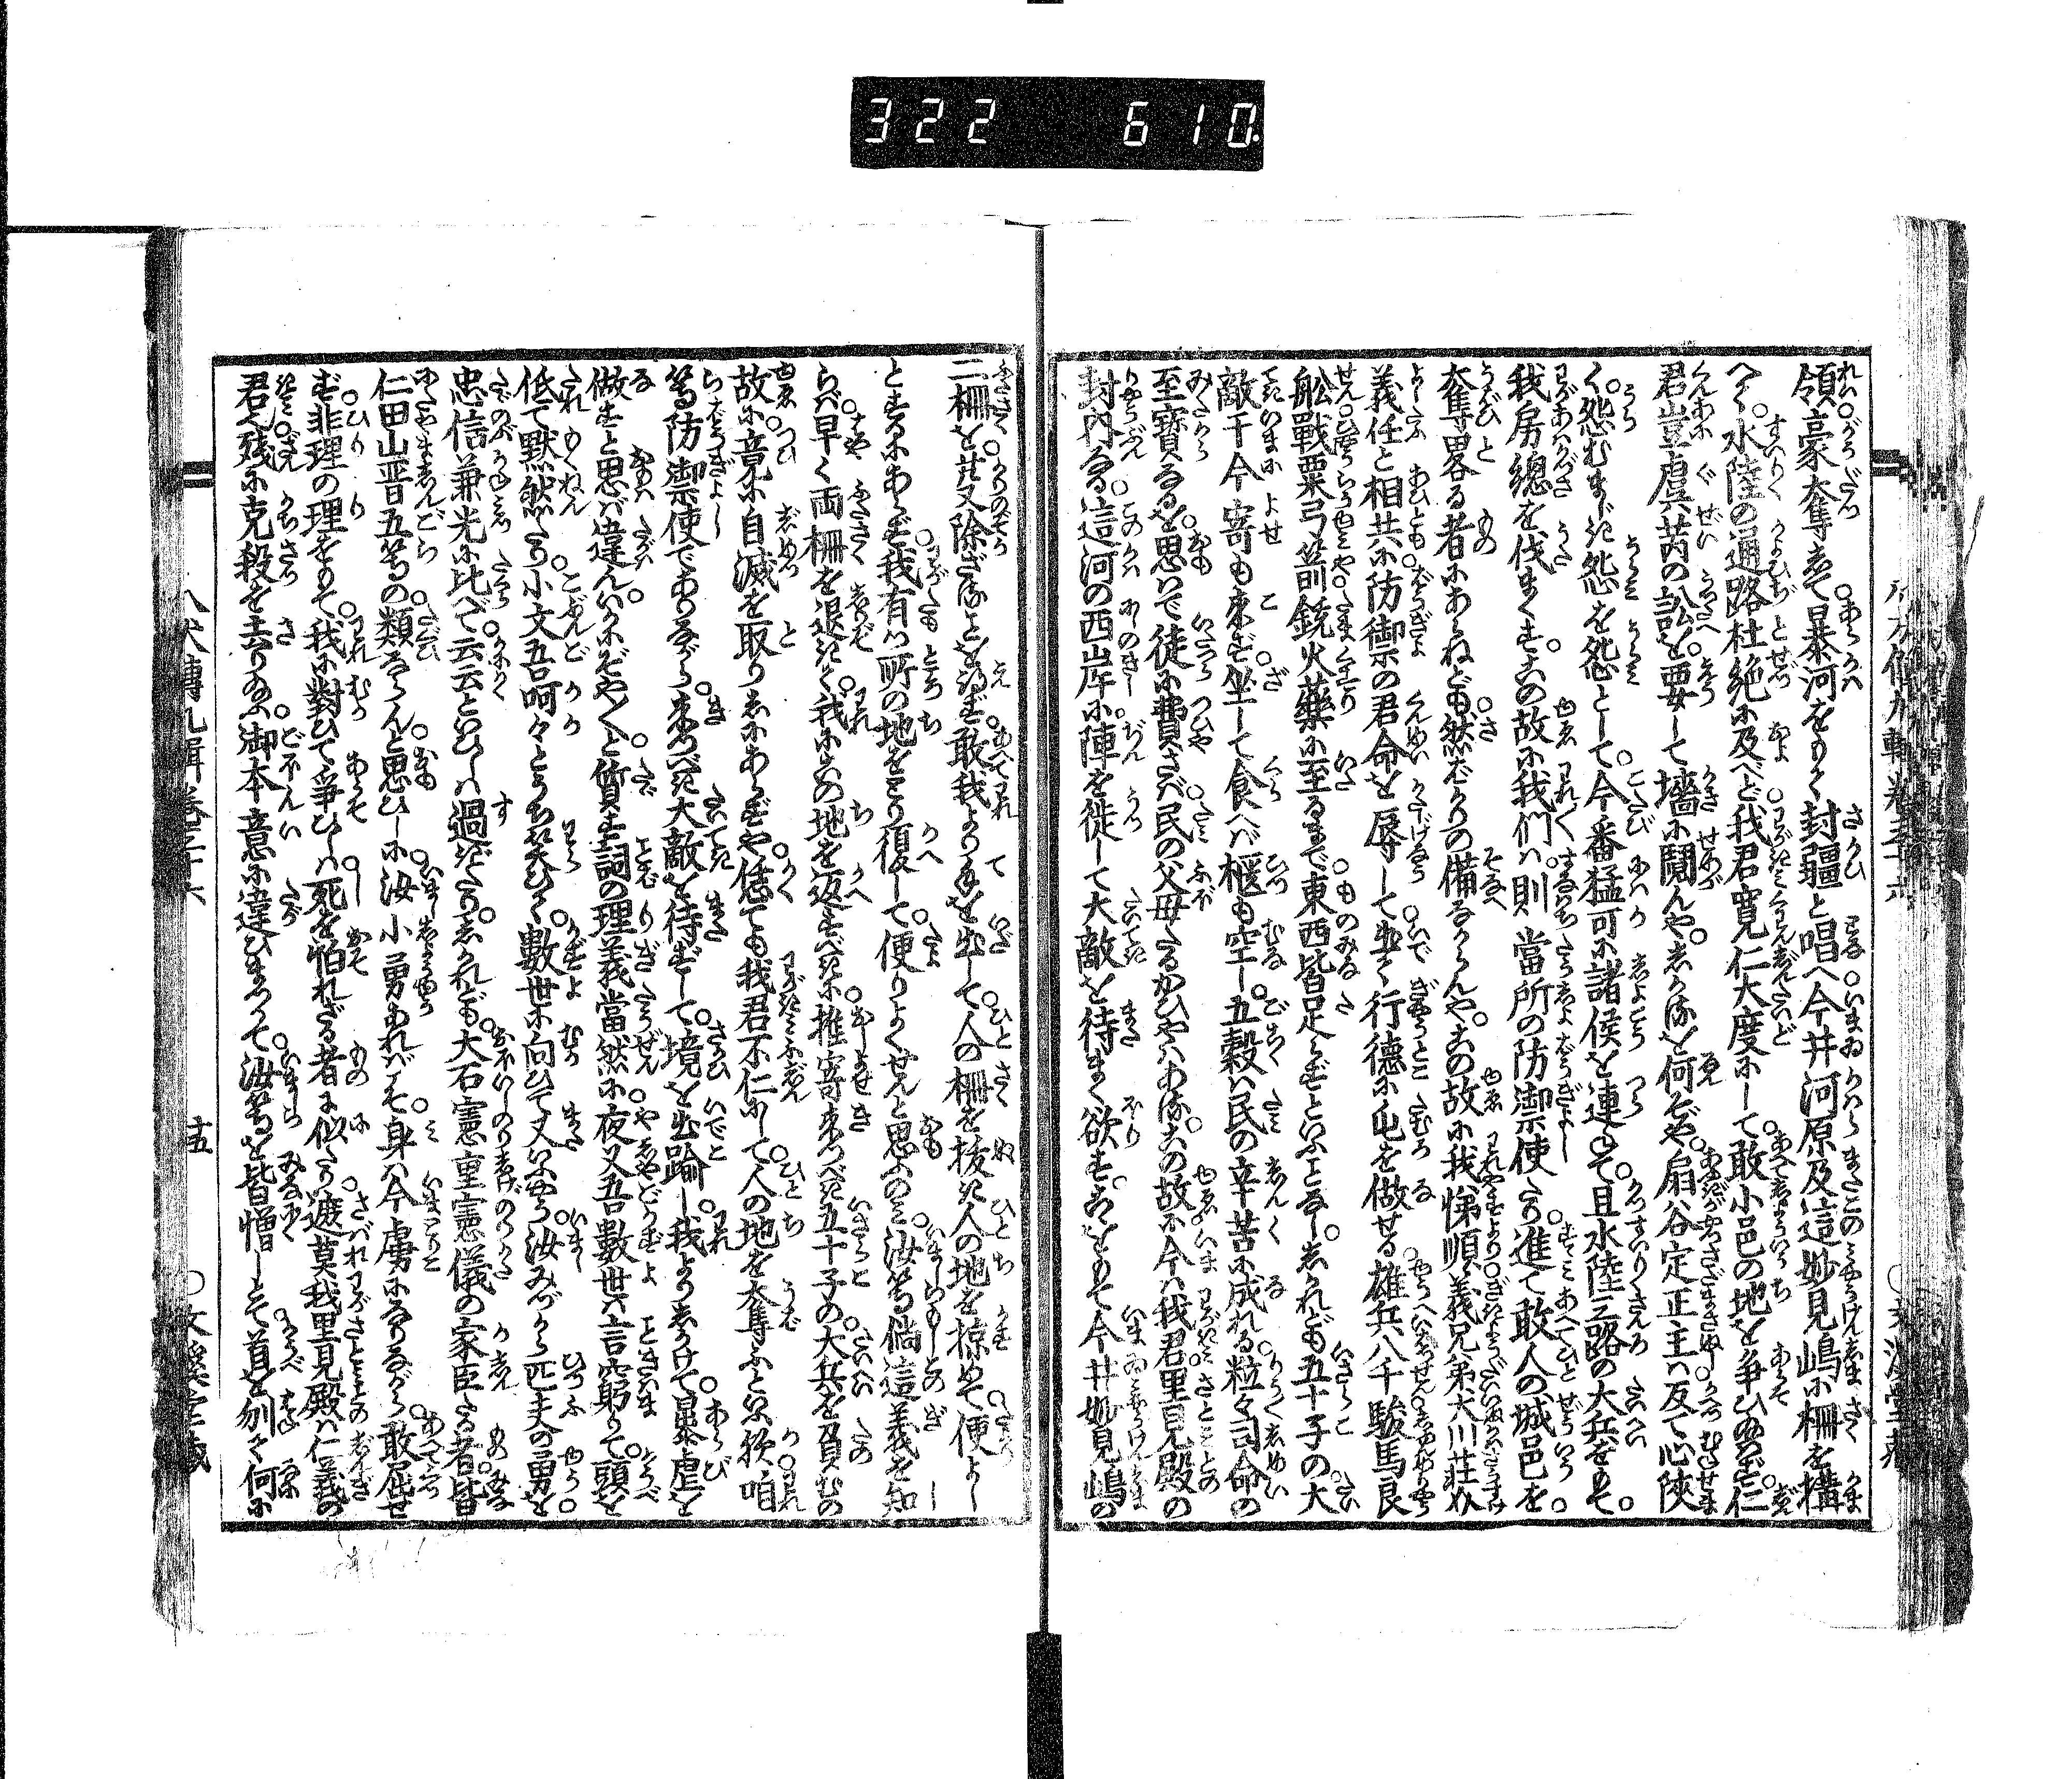 322 610
領豪奪して暴河をもて封疆と唱へ今井河原及這妙見嶋に柵を構
へて水陸の通路杜絶に及べど我君寛仁大度にして敢小邑の地を争ひ給はず仁
君豈虞芮の訟を要して墻に鬩んやしかるを何ぞや扇谷定正主は反て心陜
く怨むまじき怨を怨として今番猛可に諸侯を連ねて且水陸三路の大兵をもて
我房總を伐まくすこの故に我們は則當所の防禦使たり進て敢人の城邑を
奪畧る者にあらねども然ばかりの備なからんやこの故に我悌順義兄弟犬川莊介
義任と相共に防禦の君命を辱して出て行德に屯を做せる雄兵八千駿馬良
舩戰粟弓箭銃火藥に至るまで東西皆足らずといふことなししかれども五十子の大
敵于今寄も來ず坐して食へば櫃も空し五穀は民の辛苦に成れる粒々司命の
至寶なるを思はで徒に費さば民の父母たるかひやはあるこの故に今は我君里見殿の
封内なる這河の西岸に陣を徙して大敵を待まく欲すこゝをもて今井妙見嶋の
二柵を芟除ざることを得ず敢我より手を出して人の柵を拔き人の地を掠めて便よし
とするにあらず我有は所の地をとり復して便りよくせんと思ふのみ汝等倘這義を知
らば早く両柵を退きて我にこの地を返すべきに推寄來つべき五十子の大兵を負むの
故に竟に自滅を取りしにあらずや恁ても我君不仁にして人の地を奪ふといふ欤咱
等防禦使でありながら來つべき大敵を待ずして境を出踰し我よりしかけて暴虐を
做すと思はゞ違んいかにぞやと質す詞の理義當然に夜叉五數世は言窮りて頭を
低て默然たり小文吾呵々とうち笑ひて數世に向ひて又いふやう汝みづから匹夫の勇を
忠信兼光に比べて云云といひしは過ぎたりしかれども大石憲重憲儀の家臣たる者皆
仁田山晋五等の類ならんと思ひしに汝小勇あればこそ身は今虜になりながら敢屈せ
ず非理の理をもて我に對ひて爭ひしは死を怕れざる者に似たり遮莫我里見殿は仁義の
君で残に克殺を去り給ふ御本意に違ひまつりて汝等を皆憎しとて首を刎て何に
八犬傳九輯卷三十六
十五
○文溪堂藏